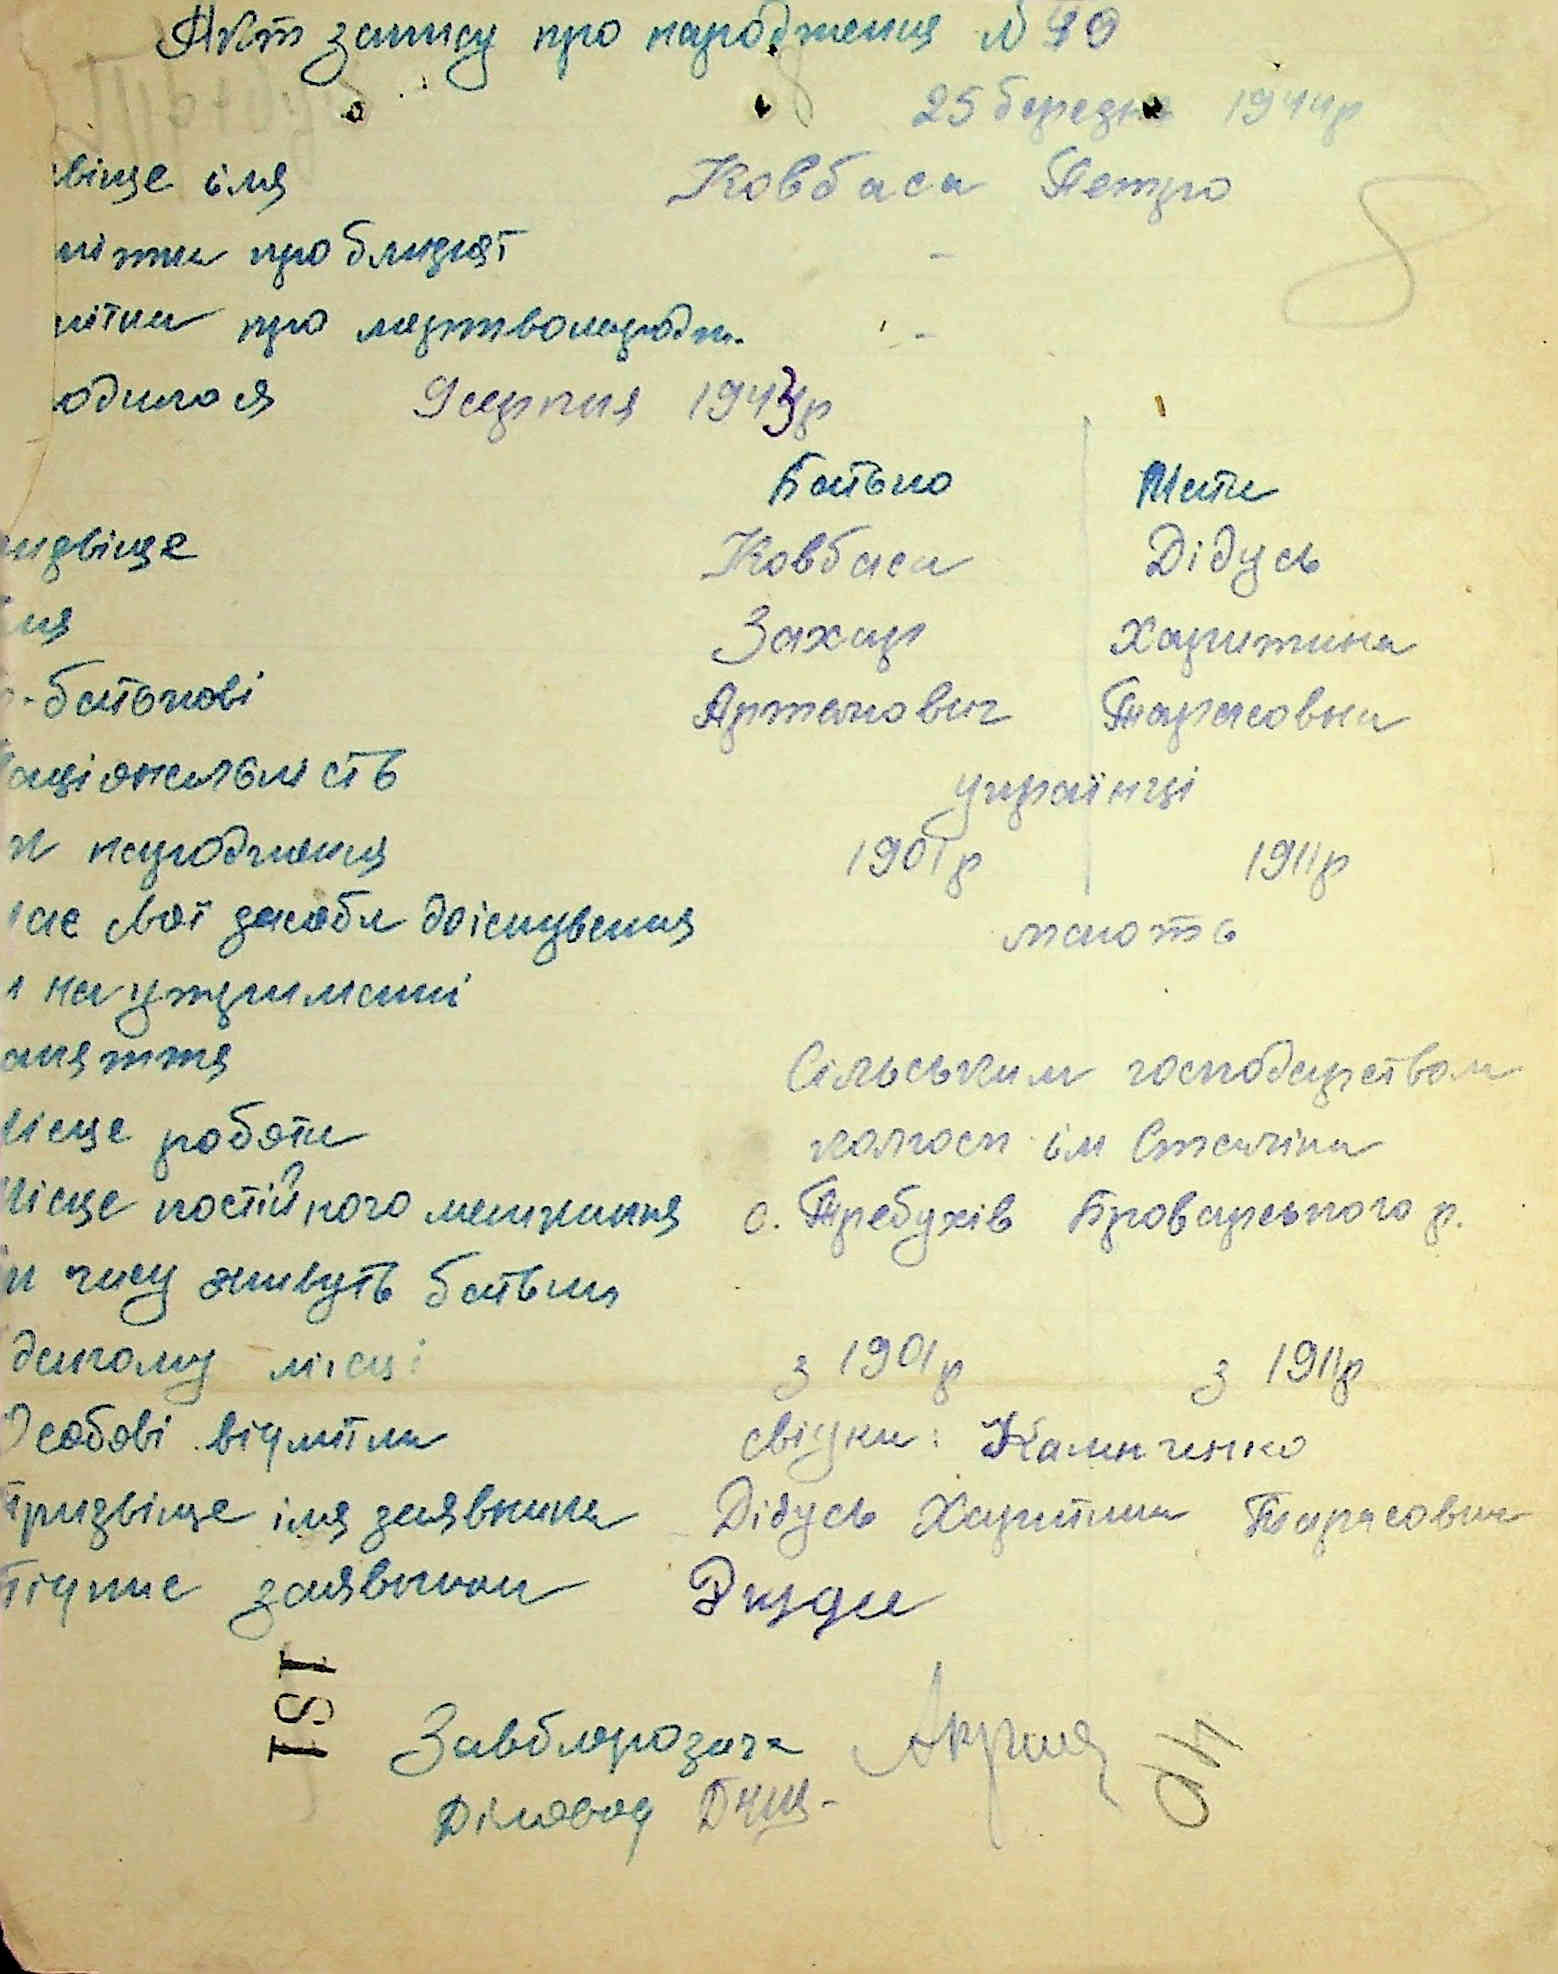 Акт запису про народження №
25 березня 1944р
віще імя Ковбаса Петро
мітка про близнят -
мітка про мертвонародж. -
одилося 9 серпня 1943р
Батько Мати
ізвіще Ковбаса Дідусь
імя Захар Харитина
о-батькові Артемович Тарасовна
національність українці
к народження 1901р 1911р
має свої засоби доіснування мають
и на утриманні
аняття Сільським господарством
Місце роботи колгосп ім Сталіна
Місце постійного мешкання с. Требухів Броварського р.
и часу живуть батьки
даному місці з 1901р з 1911р
Особові відмітки свідки: Калиниченко
Призвіще імя заявника Дідусь Харитина Тарасовна
Підпис заявника
151
Завбюрозага
Діловод